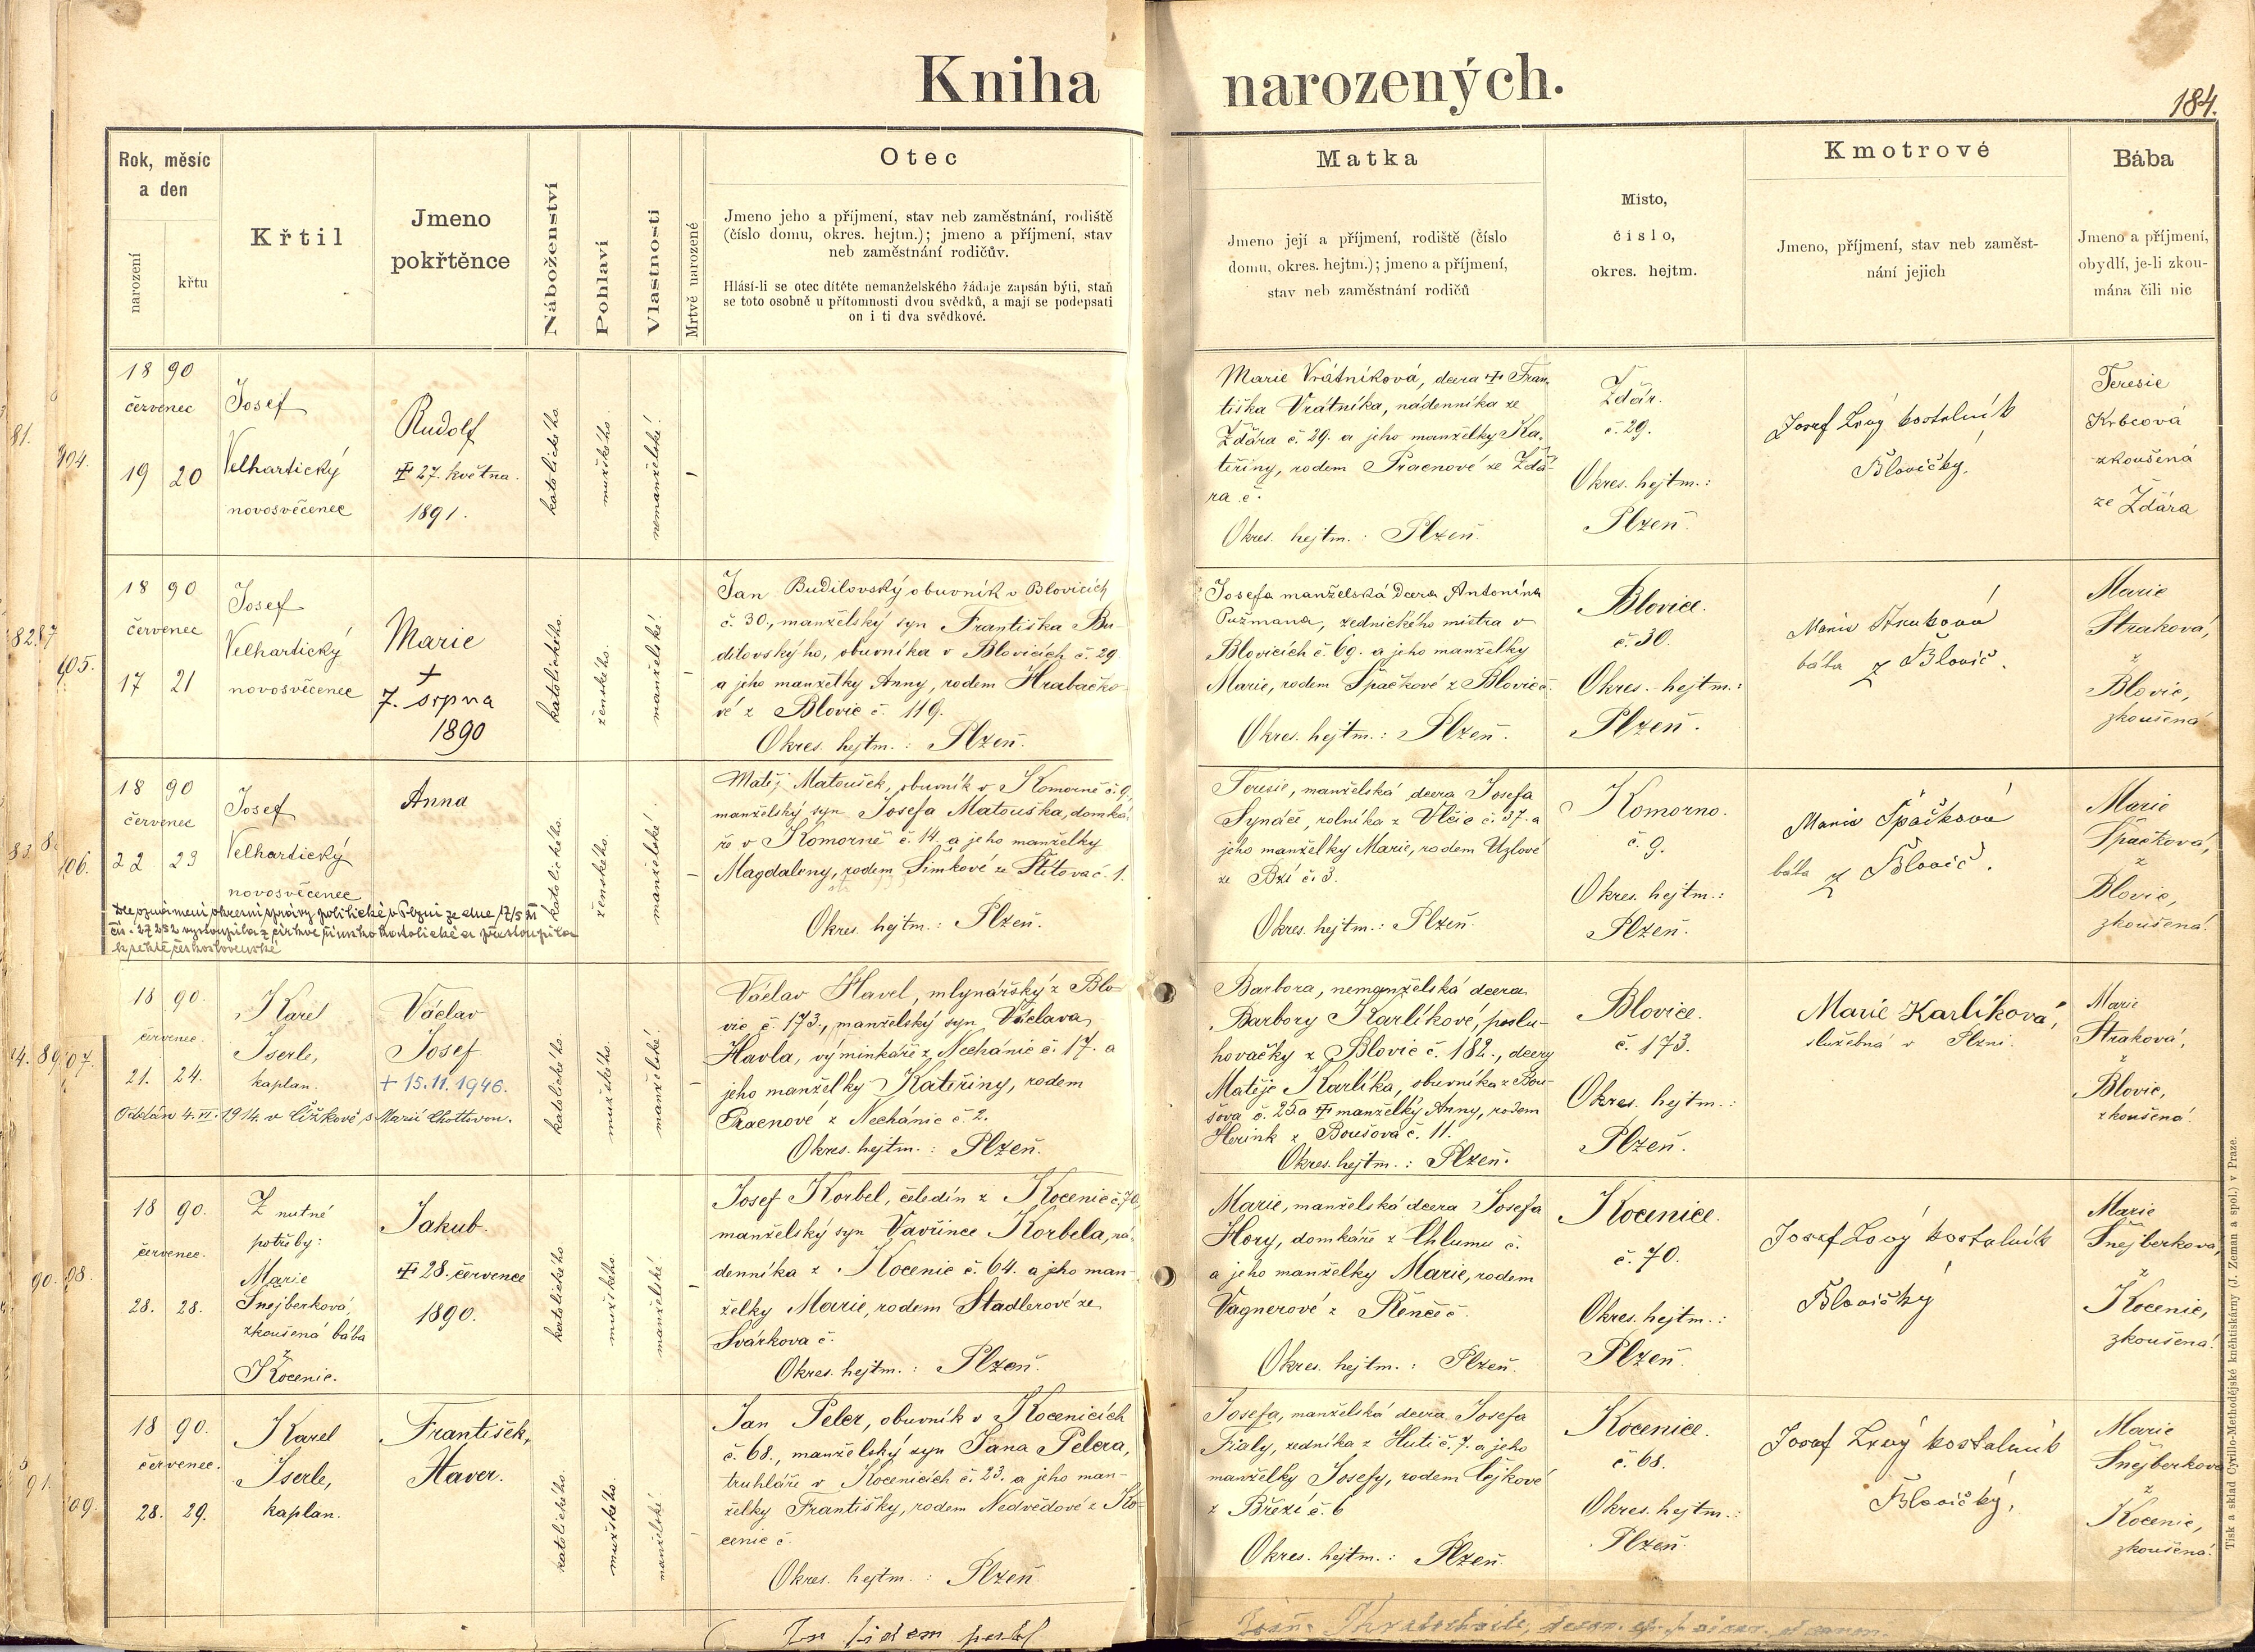 Kniha narozených.
184.
Rok, měsíc
a den
narození
křtu
Křtil
Jmeno
pokřtěnce
Náboženství
Pohlaví
Vlastnosti
Mrtvě narozené
Otec
Jmeno jeho a příjmení, stav neb zaměstnání, rodiště
(číslo domu, okres. hejtm.); jmeno a příjmení, stav
neb zaměstnání rodičův.
Hlásí-li se otec dítěte nemanželského žádaje zapsán býti, staň
se toto osobně u přítomnosti dvou svědků, a mají se podepsati
on i ti dva svědkové.
Matka
Jmeno její a příjmení, rodiště (číslo
domu, okres. hejtm.); jmeno a příjmení,
stav neb zaměstnání rodičů
Místo,
číslo,
okres. hejtm.
Kmotrové
Jmeno, příjmení, stav neb zaměst-
nání jejich
Bába
Jmeno a příjmení,
obydlí, je-li zkou-
mána čili nic
18 90
červenec
19 20
Josef
Velhartický
novosvěcenec
Rudolf
27. května.
1891.
katolického.
mužského.
nemanželské.
Marie Vrátníková, dcera Fran-
tiška Vrátníka, nádenníka ze
Ždára č. 29. a jeho manželky Ka-
teřiny, rodem Pracnové ze Ždá-
ra č.
Okres. hejtm.: Plzeň.
Ždár.
č. 29.
Okres. hejtm.:
Plzeň.
Josef kostelník
Blovičky.
Teresie
Krbcová
zkoušená
ze Ždára
18 90
červenec
17 21
Josef
Velhartický
novosvěcenec
Marie
+
7. srpna
1890
katolického.
ženského.
manželské.
Jan Budilovský obuvník v Blovicích
č. 30., manželský syn Františka Bu-
dilovského, obuvníka v Blovicích č. 29
a jeho manželky Anny, rodem Hrabačko-
vé z Blovic č. 119.
Okres. hejtm.: Plzeň.
Josefa manželská dcera Antonína
Pužmana, zednického mistra v
Blovicích č. 69. a jeho manželky
Marie, rodem Špačkové z Blovic č.
Okres. hejtm.: Plzeň.
Blovice.
č. 30.
Okres. hejtm.:
Plzeň.
Marie Straková
bába z Blovic.
Marie
Straková,
z
Blovic,
zkoušená
18 90
červenec
22 23
Josef
Velhartický
novosvěcenec
Anna
katolického.
ženského.
manželské.
Matěj Matoušek, obuvník v Komorně č. 9,
manželský syn Josefa Matouška, domká-
ře v Komorně č. 14. a jeho manželky
Magdaleny, rodem Šimkové ze Štítova č. 1.
Okres. hejtm.: Plzeň.
Teresie, manželská dcera Josefa
Synáče, rolníka z Vlčic č. 37. a
jeho manželky Marie, rodem Uzlové
ze Bzí č. 3.
Okres. hejtm.: Plzeň.
Komorno.
č. 9.
Okres. hejtm.:
Plzeň.
Marie Špačková
bába z Blovic.
Marie
Špačková,
z
Blovic,
zkoušená.
Dle oznámení okresní správy politické v Plzni ze dne 17/5
čís. 27252 vystoupila z církve římsko katolické a přestoupila
československé
18 90.
červenec.
21. 24.
Karel
Iserle,
kaplan.
Václav
Josef
+ 15.11.1946.
Oddán 4. VI. 1914. v Čížkově s Marií Chottovou.
katolického.
mužského.
manželské.
Václav Havel, mlynářský z Blo-
vic č. 173., manželský syn Václava
Havla, výminkáře z Nechánic č. 17. a
jeho manželky Kateřiny, rodem
Pracnové z Nechánic č. 2.
Okres. hejtm.: Plzeň.
Barbora, nemanželská dcera
Barbory Karlíkové, poslu-
hovačky z Blovic č. 182., dcery
Matěje Karlíka, obuvníka z Bou-
šova č. 25. a manželky Anny, rodem
Herink z Boušova č. 11.
Okres. hejtm.: Plzeň.
Blovice.
č. 173.
Okres. hejtm.:
Plzeň.
Marie Karlíková,
služebná v Plzni.
Marie
Straková,
z
Blovic,
zkoušená.
18 90.
červenec.
28. 28.
Z nutné
potřeby:
Marie
Šnejberková,
zkoušená bába
z
Kocenic.
Jakub.
28. července
1890.
katolického.
mužského.
manželské.
Josef Korbel, čeledín z Kocenic č. 70,
manželský syn Vavřince Korbela, ná-
denníka z Kocenic č. 64. a jeho man-
želky Marie, rodem Stadlerové ze
Svárkova č.
Okres. hejtm.: Plzeň.
Marie, manželská dcera Josefa
Hory, domkáře z Chlumu č.
a jeho manželky Marie, rodem
Vagnerové z Řenče č.
Okres. hejtm.: Plzeň.
Kocenice.
č. 70.
Okres. hejtm.:
Plzeň.
Josef kostelník
Blovičky
Marie
Šnejberková,
z
Kocenic,
zkoušená.
18 90.
červenec.
28. 29.
Karel
Iserle,
kaplan.
František,
Xaver.
katolického.
mužského.
manželské.
Jan Peler, obuvník v Kocenicích
č. 68., manželský syn Jana Pelera,
truhláře v Kocenicích č. 23. a jeho man-
želky Františky, rodem Nedvědové z Ko-
cenic č.
Okres. hejtm.: Plzeň.
Josefa, manželská dcera Josefa
Fialy, zedníka z Huti č. 7. a jeho
manželky Josefy, rodem Čejkové
z Březí č. 6
Okres. hejtm.: Plzeň.
Kocenice.
č. 68.
Okres. hejtm.:
Plzeň.
Josef kostelník
Blovičky,
Marie
Šnejberková
z
Kocenic,
zkoušená.
Tisk a sklad Cyrillo-Methodějské kněhtiskárny (J. Zeman a spol.) v Praze.